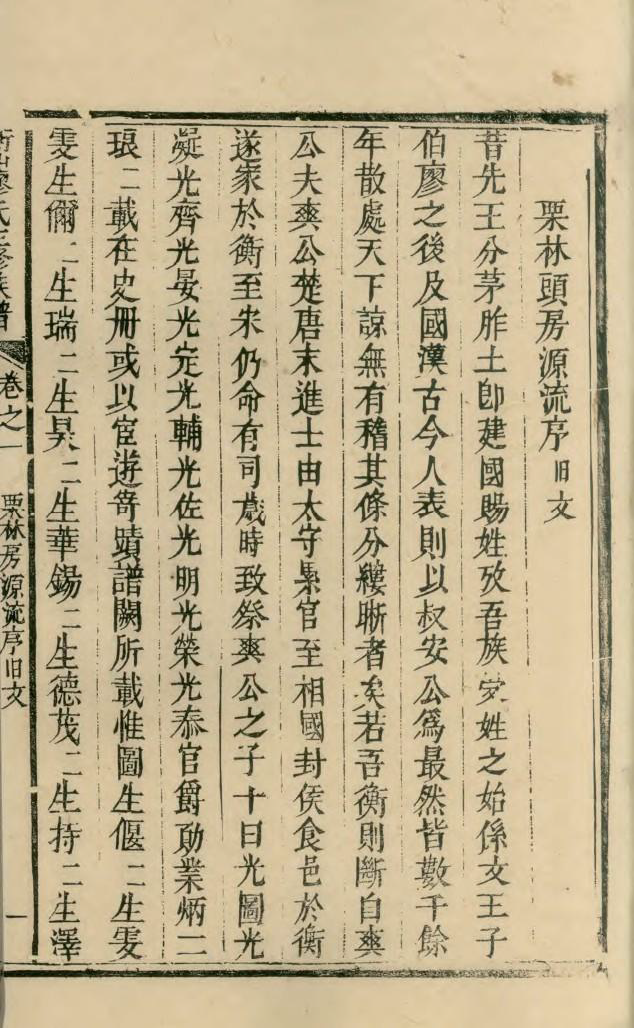 栗林頭房源流序旧文
昔先王分茅胙土卽建國賜姓攷吾族受姓之始係文王子
伯廖之後及國漢古今人表則以叔安公爲最然皆數千餘
年散處天下諒無有稽其條分縷晰者矣若吾衡則斷自爽
公夫爽公楚唐末進士由太守累官至相國封侯食邑於衡
遂家於衡至宋仍命有司歲時致祭爽公之子十曰光圖光
凝光齊光晏光定光輔光佐光明光榮光泰官爵勛業炳二
琅二載在史册或以宦遊寄蹟譜闕所載惟圖生偃二生雯
雯生儞二生瑞二生昊二生華錫二生德茂二生持二生澤
衡山廖氏五修族譜 卷之一 栗林房源流序旧文 一